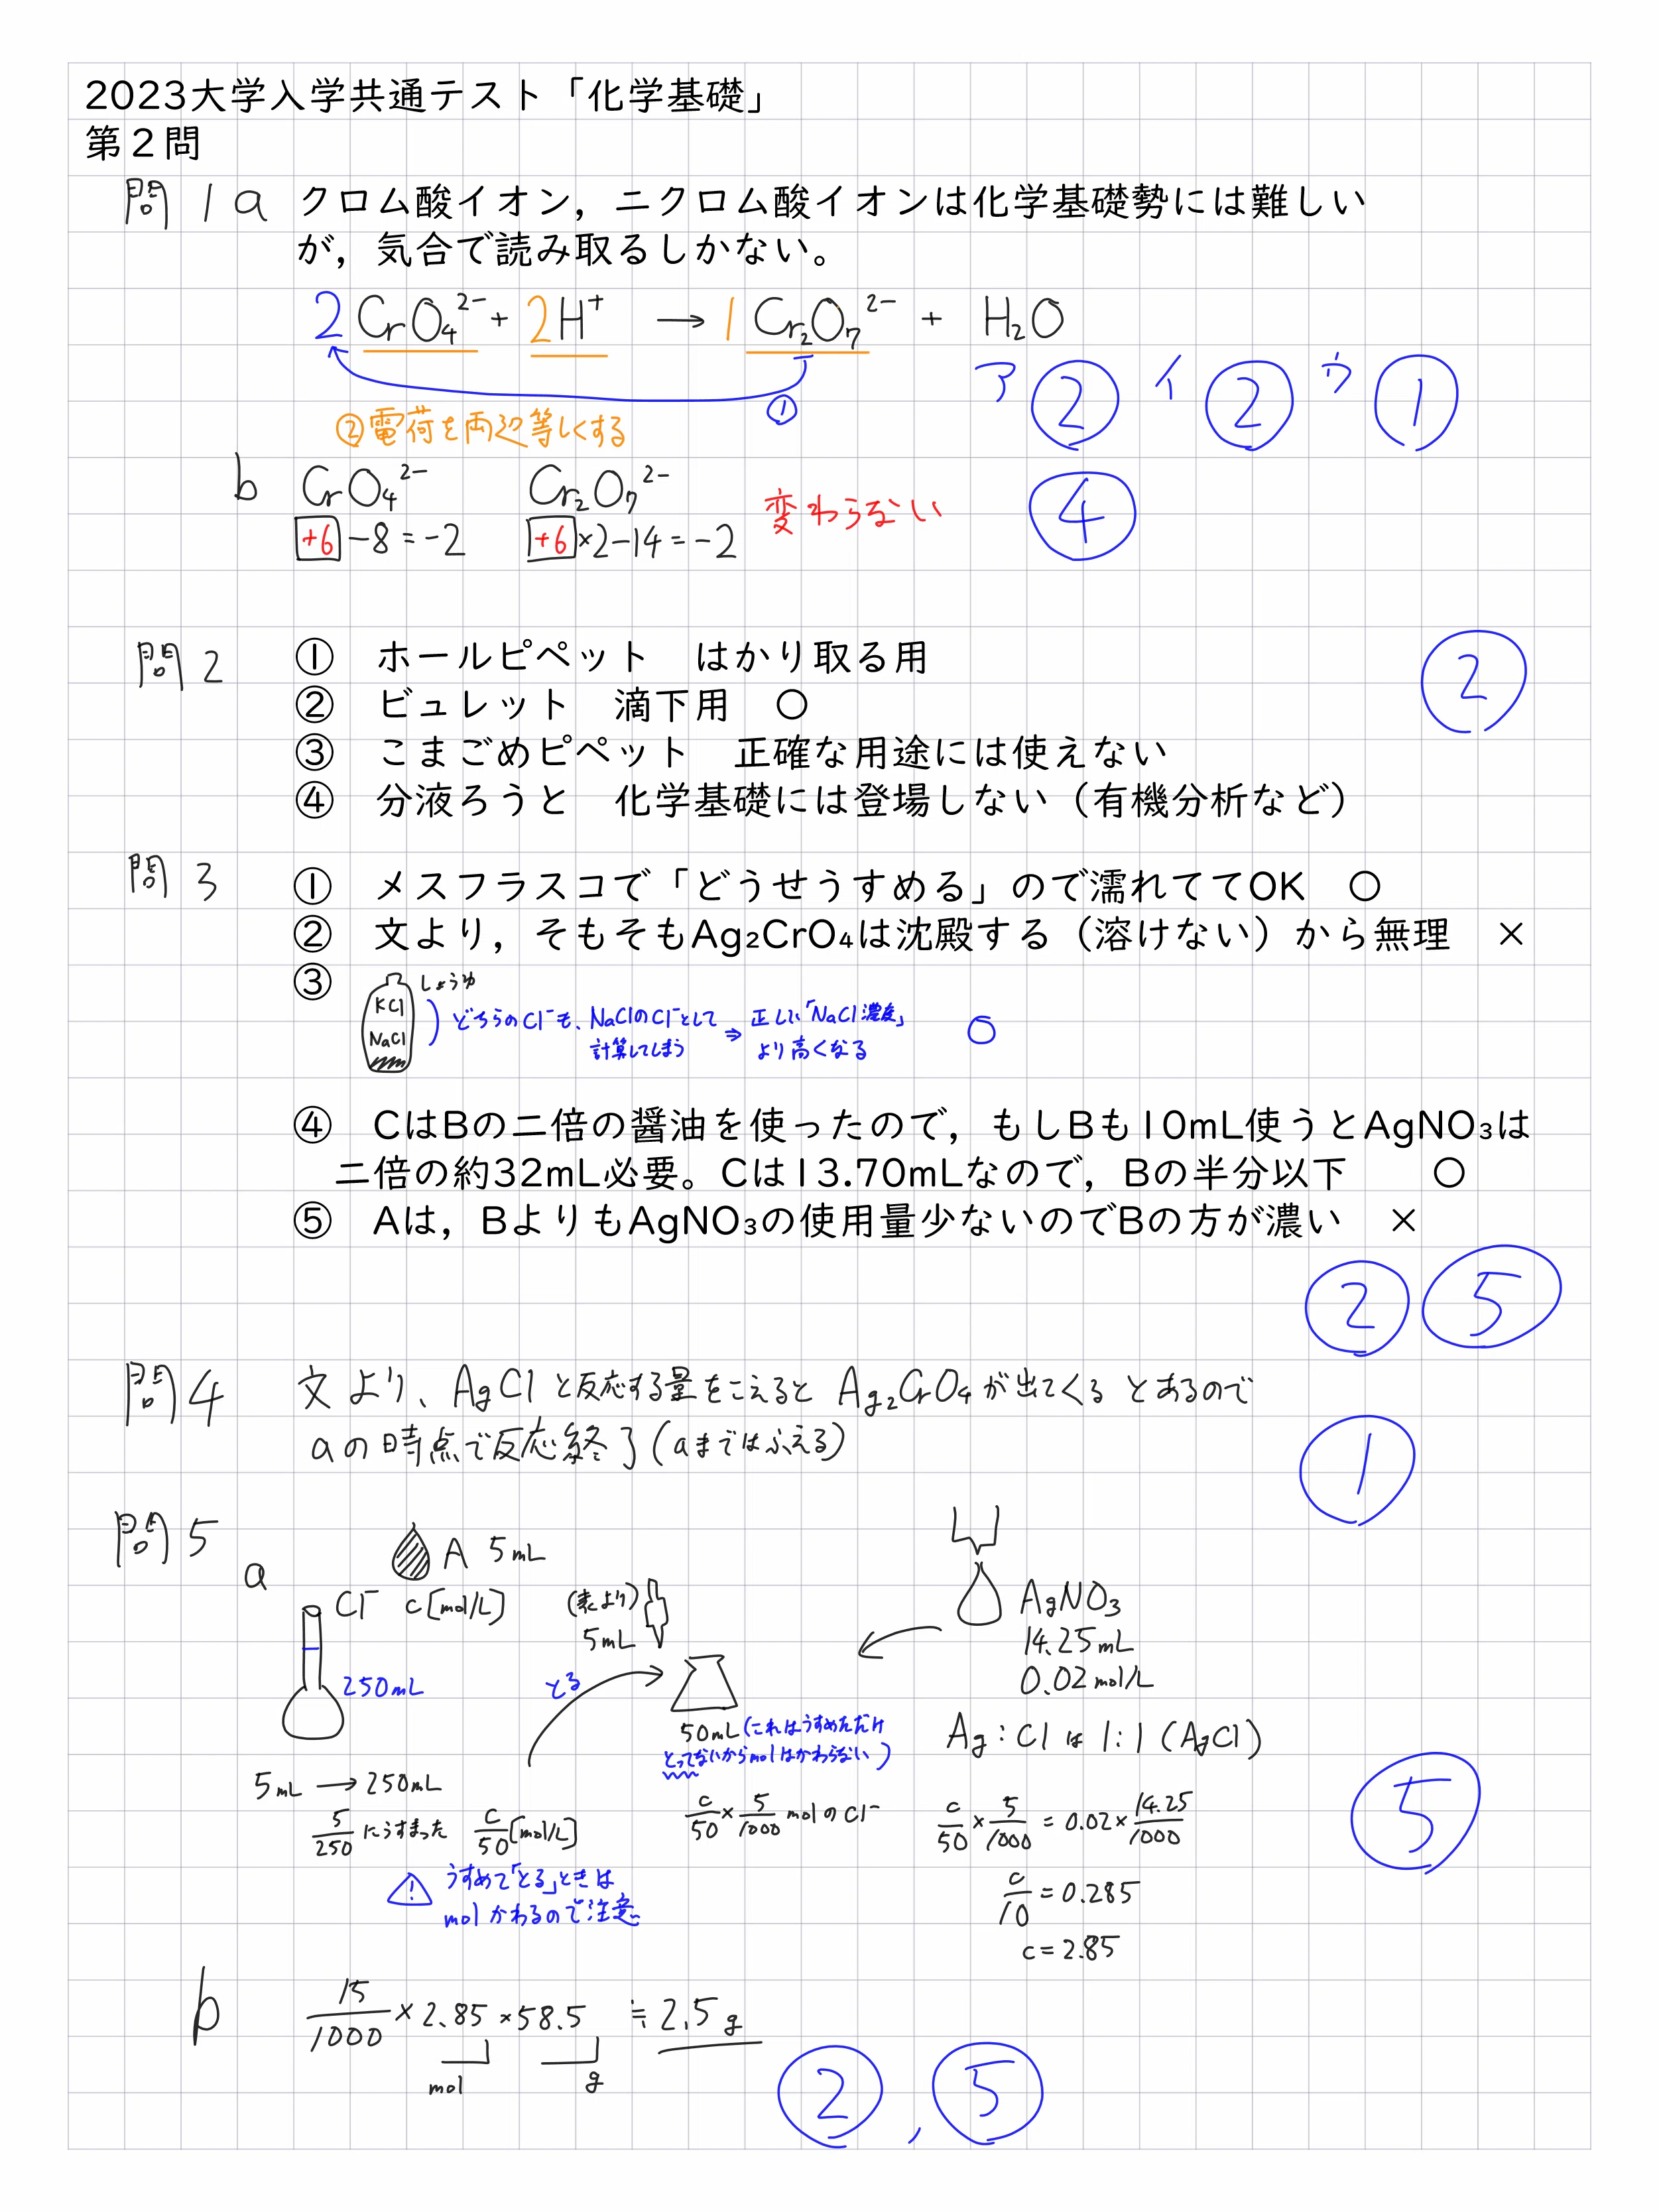 2023大学入学共通テスト「化学基礎」
第２問
問1a クロム酸イオン，ニクロム酸イオンは化学基礎勢には難しい
が，気合で読み取るしかない。
2CrO₄²⁻ + 2H⁺ → 1Cr₂O₇²⁻ + H₂O
①
ア② イ② ウ①
②電荷を両辺等しくする
b CrO₄²⁻ Cr₂O₇²⁻ 変わらない ④
+6 -8 = -2 +6 ×2-14 = -2
問2 ① ホールピペット はかり取る用 ②
② ビュレット 滴下用 ○
③ こまごめピペット 正確な用途には使えない
④ 分液ろうと 化学基礎には登場しない（有機分析など）
問3 ① メスフラスコで「どうせうすめる」ので濡れててOK ○
② 文より，そもそもAg₂CrO₄は沈殿する（溶けない）から無理 ×
③ しょうゆ
KCl
NaCl
どちらのCl⁻も、NaClのCl⁻として
計算してしまう
⇒ 正しい「NaCl濃度」
より高くなる
○
④ CはBの二倍の醤油を使ったので，もしBも10mL使うとAgNO₃は
二倍の約32mL必要。Cは13.70mLなので，Bの半分以下 ○
⑤ Aは，BよりもAgNO₃の使用量少ないのでBの方が濃い ×
② ⑤
問4 文より、AgClと反応する量をこえるとAg₂CrO₄が出てくるとあるので
aの時点で反応終了(aまではふえる)
①
問5
a
A 5mL
Cl⁻ c[mol/L]
250mL
(表より)
5mL
とる
50mL(これはうすめただけ
とってないからmolはかわらない)
AgNO₃
14.25mL
0.02mol/L
Ag:Clは1:1(AgCl)
5mL → 250mL
5/250にうすまった c/50[mol/L]
c/50×5/1000molのCl⁻
c/50×5/1000=0.02×14.25/1000
⑤
! うすめて「とる」ときは
molかわるので注意
c/10=0.285
c=2.85
b 15/1000×2.85×58.5≒2.5g
mol g
②,⑤